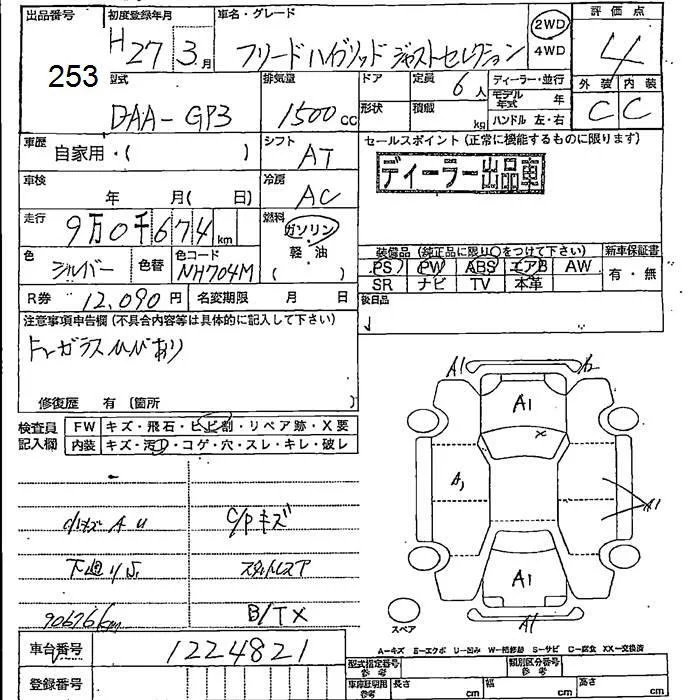 出品番号 初度登録年月 車名・グレード 2WD 評価点
253 H27 3月 フリードハイブリッド ジャストセレクション 4WD 4
型式 排気量 ドア 定員 6人 ディーラー・並行 外装 内装
DAA-GP3 1500cc 形状 積載 kg モデル年式 年 C C
ハンドル 左・右
車歴 自家用・( ) シフト AT セールスポイント(正常に機能するものに限ります)
車検 年 月( 日) 冷房 AC ディーラー出品車
走行 9万0千674km 燃料 ガソリン
軽油
( )
色 シルバー 色替 色コード NH704M 装備品(純正品に限り○をつけて下さい) 新車保証書
PS PW ABS エアB AW 有・無
R券 12,090円 名変期限 月 日 SR ナビ TV 本革
注意事項申告欄(不具合内容等は具体的に記入して下さい) 後日品
Frガラスヒビあり
修復歴 有(箇所 )
検査員記入欄 FW キズ・飛石・ヒビ割・リペア跡・X要
内装 キズ・汚レ・コゲ・穴・スレ・キレ・破レ
A1
A1
A1 A1
A1
A1
AU C/Pキズ
下廻りS
90676km B/TX
スペア
車台番号 1224821
A-キズ E-エクボ U-凹み W-補修跡 S-サビ C-腐食 XX-交換済
登録番号 型式指定番号 参考 類別区分番号 参考
車庫証明用 参考 長さ cm 幅 cm 高さ cm